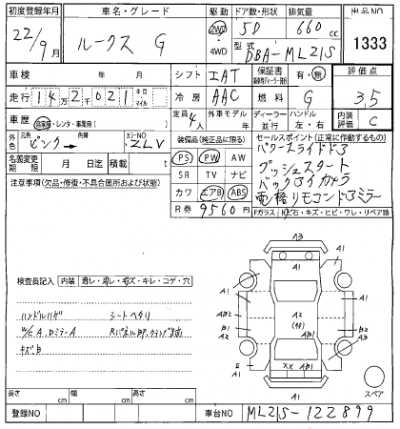 初度登録年月 車名・グレード 駆動 ドア数・形状 排気量 出品NO
22/9月 ルークス G 2WD 4WD 5D 660cc 1333
型式 DBA-ML21S
車検 年 月 シフト IAT 保証書 有・無 評価点
走行 142021 キロ マイル 冷房 AAC 燃料 G 3.5
車歴 自家用・レンタ・事業用( ) 定員 4人 外車モデル 年 ディーラー 並行 ハンドル 左・右 内装評価 C
外色 ピンク 色替 カラーNO ZLV 装備品(純正品に限る) セールスポイント(正常に作動するもの)
名義変更期限 月 日迄 積載 t PS PW AW パワースライドドア
注意事項(欠品・修復・不具合箇所および状態) SR TV ナビ プッシュスタート
カワ エアB ABS バックアイカメラ
R券 9560円 電格リモコンドアミラー
Fガラス 飛石・キズ・ヒビ・ワレ・リペア跡
検査員記入 内装
ハンドルハゲ シートヘタリ
W/G A、DミラーA
キズB
A3
A1 A1
A1 A1
A2 A2
B1 B2
A1 AB1 A1
XX AB1
A2
長さ cm 幅 cm 高さ cm スペア
登録NO 車台NO ML21S-122899